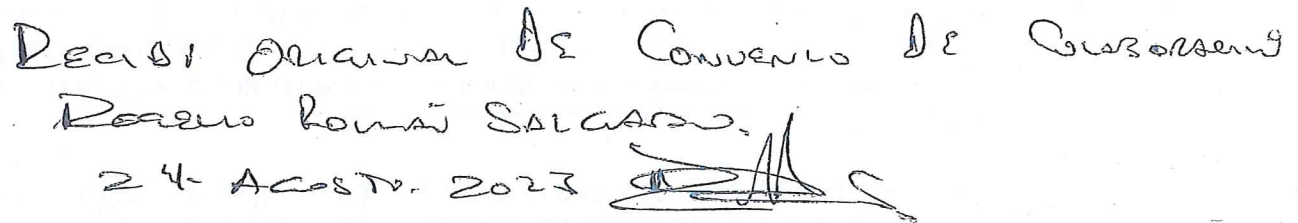 Recibi Original De Convenio De Colaboración
Rogelio Román Salgado.
24- Agosto. 2023